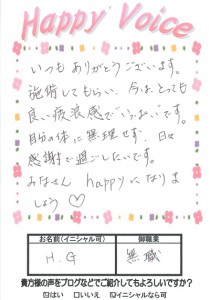 Happy Voice
いつもありがとうございます。
施術してもらい、今は、とっても
良い疲浪感でいっぱいです。
自分の体に無理せず、日々
感謝で過ごしたいです。
みなさん happyになりま
しょう♡
お名前(イニシャル可) 御職業
H.G 無職
貴方様の声をブログなどでご紹介してもよろしいですか?
☑はい □いいえ ☑イニシャルなら可